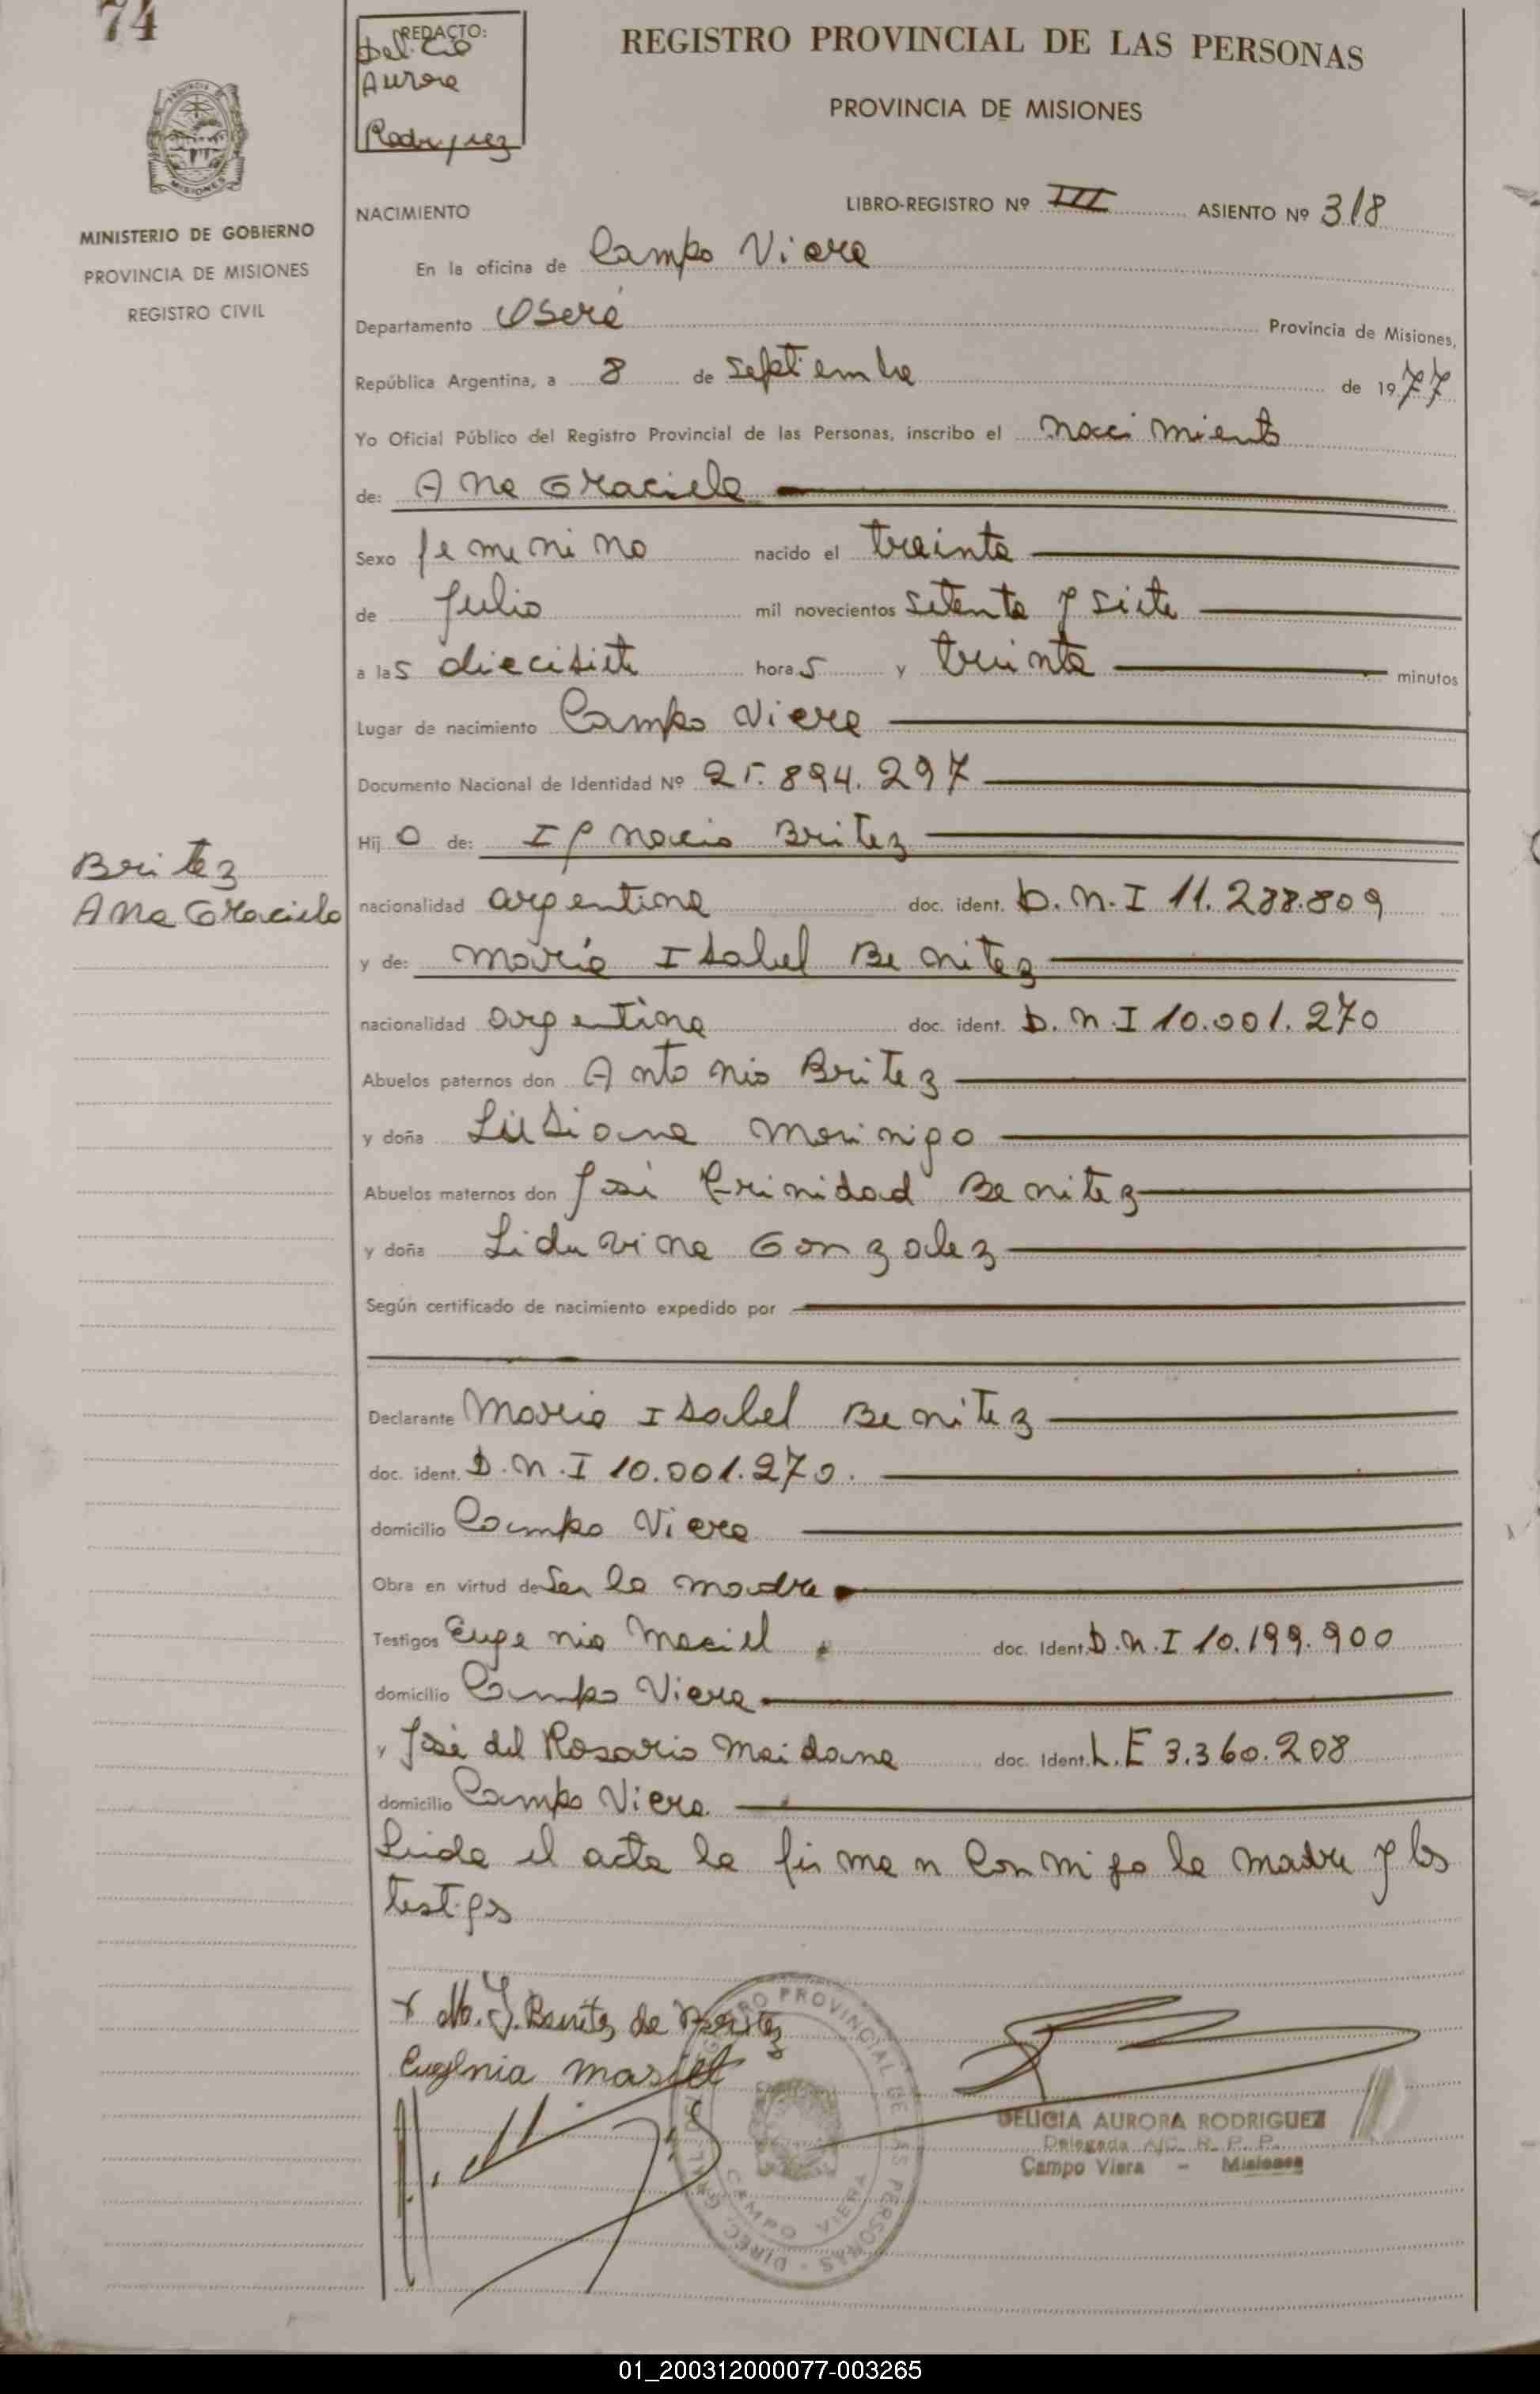 74
REDACTO:
Delicia
Aurora
Rodriguez
REGISTRO PROVINCIAL DE LAS PERSONAS
PROVINCIA DE MISIONES
MISIONES
MINISTERIO DE GOBIERNO
PROVINCIA DE MISIONES
REGISTRO CIVIL
NACIMIENTO
LIBRO-REGISTRO Nº III ASIENTO Nº 318
En la oficina de Campo Viera
Departamento Oberá Provincia de Misiones,
República Argentina, a 8 de septiembre de 1977
Yo Oficial Público del Registro Provincial de las Personas, inscribo el nacimiento
de: Ana Graciela
Sexo femenino nacido el treinta
de julio mil novecientos setenta y siete
a las diecisiete horas y treinta minutos
Lugar de nacimiento Campo Viera
Documento Nacional de Identidad Nº 25.894.297
Hijo de: Ignacio Britez
Britez
Ana Graciela
nacionalidad argentina doc. ident. D.N.I 11.288.809
y de: María Isabel Benitez
nacionalidad argentina doc. ident. D.N.I 10.001.270
Abuelos paternos don Antonio Britez
y doña Lusiana Morinigo
Abuelos maternos don José Trinidad Benitez
y doña Liduvina Gonzalez
Según certificado de nacimiento expedido por
Declarante María Isabel Benitez
doc. ident. D.N.I 10.001.270.
domicilio Campo Viera
Obra en virtud de Ser la madre
Testigos Eugenia Maciel doc. Ident. D.N.I 10.199.900
domicilio Campo Viera
y José del Rosario Maidana doc. Ident. L.E 3.360.208
domicilio Campo Viera.
Leida el acta la firman conmigo la madre y los
testigos
x M. I. Benitez de Britez
Eugenia Masiel
REGISTRO PROVINCIAL DE LAS PERSONAS
CAMPO VIERA
DELICIA AURORA RODRIGUEZ
Delegada A/C. R. P. P.
Campo Viera - Misiones
01_200312000077-003265